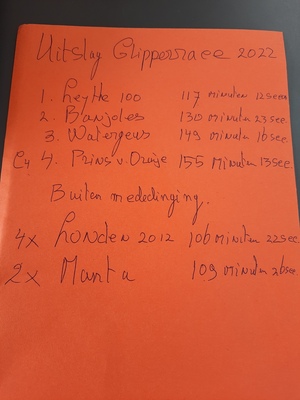 Uitslag Glipperrace 2022
1. Heytte 100 117 minuten 12 secon
2. Banjoles 130 minuten 23 sec
3. Watergeus 149 minuten 16 sec
C4 4. Prins v. Oranje 155 minuten 13 sec
Buiten mededinging.
4x Londen 2012 106 minuten 22 sec
2x Manta 109 minuten 26 sec